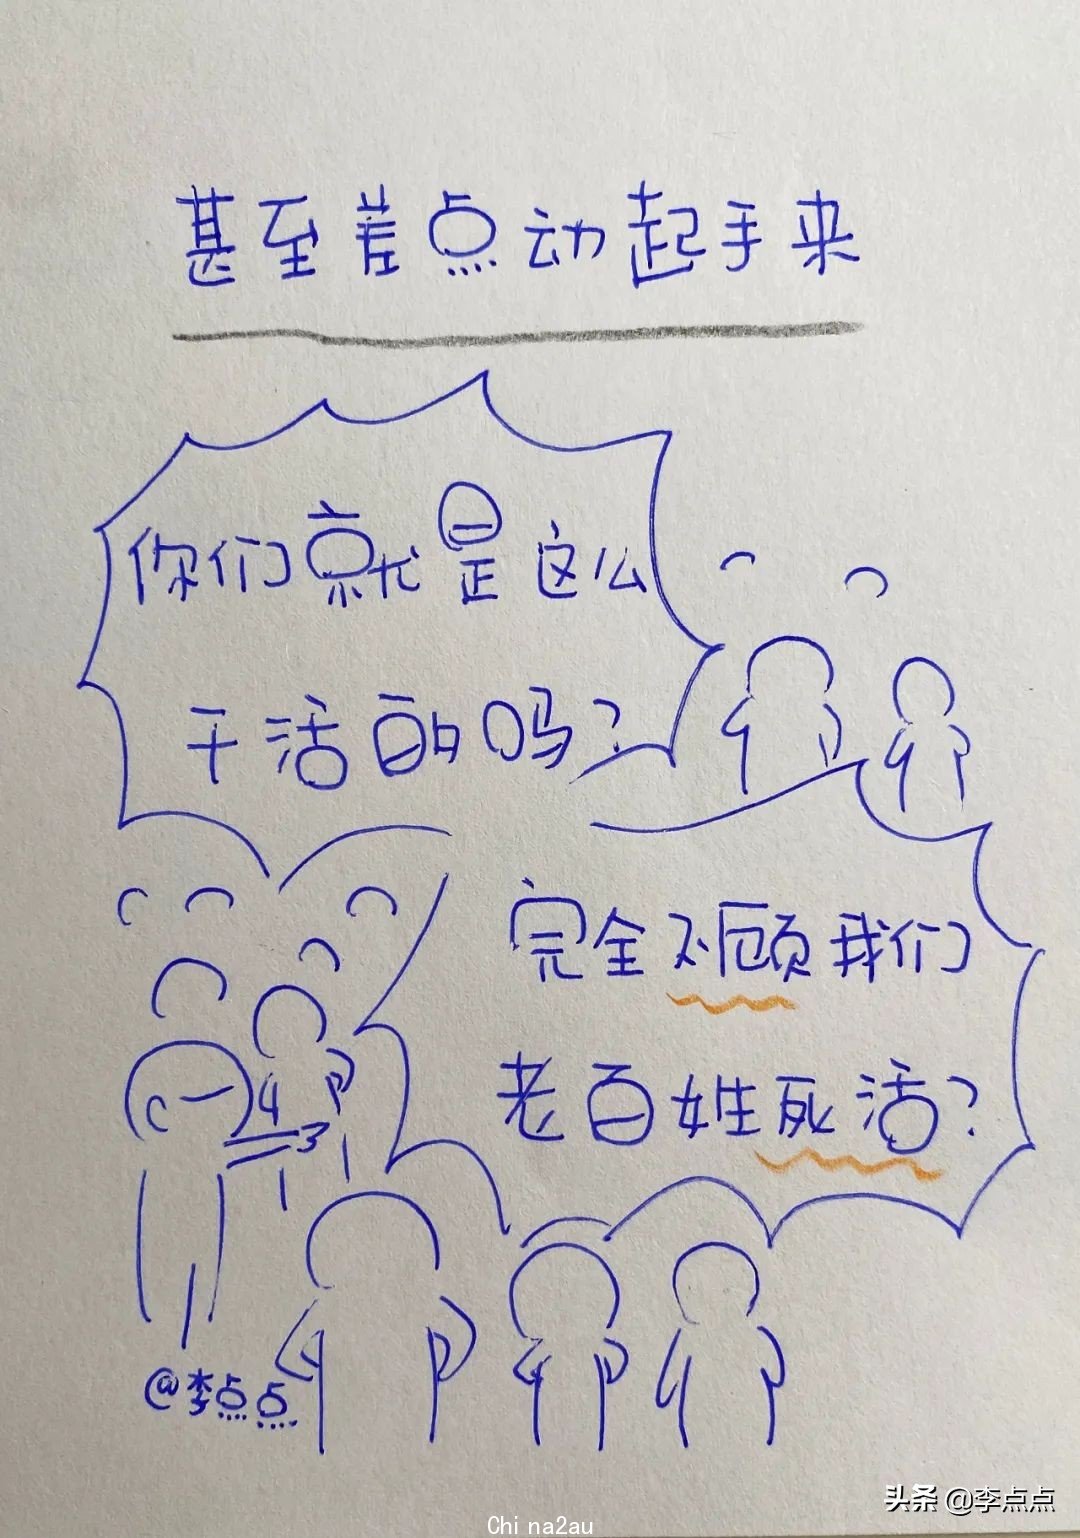 甚至差点动起手来
你们就是这么
干活的吗？
完全不顾我们
老百姓死活？
@李点点
头条 @李点点
Chi na2au